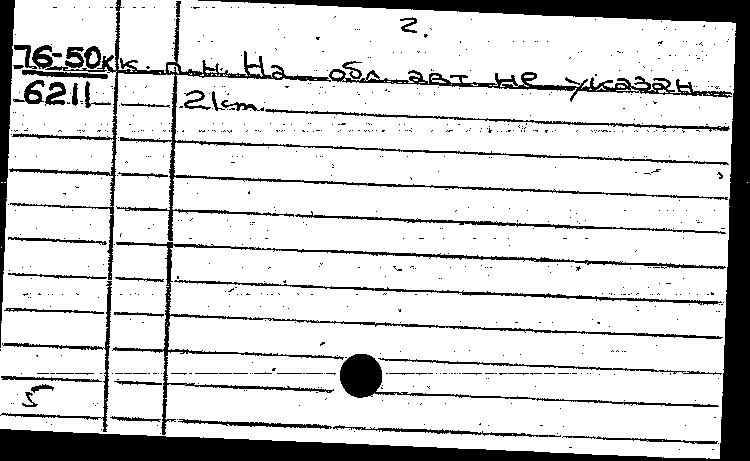 2.
76-50кк. п.н. На обл. авт. не указан
6211 21cm.
5